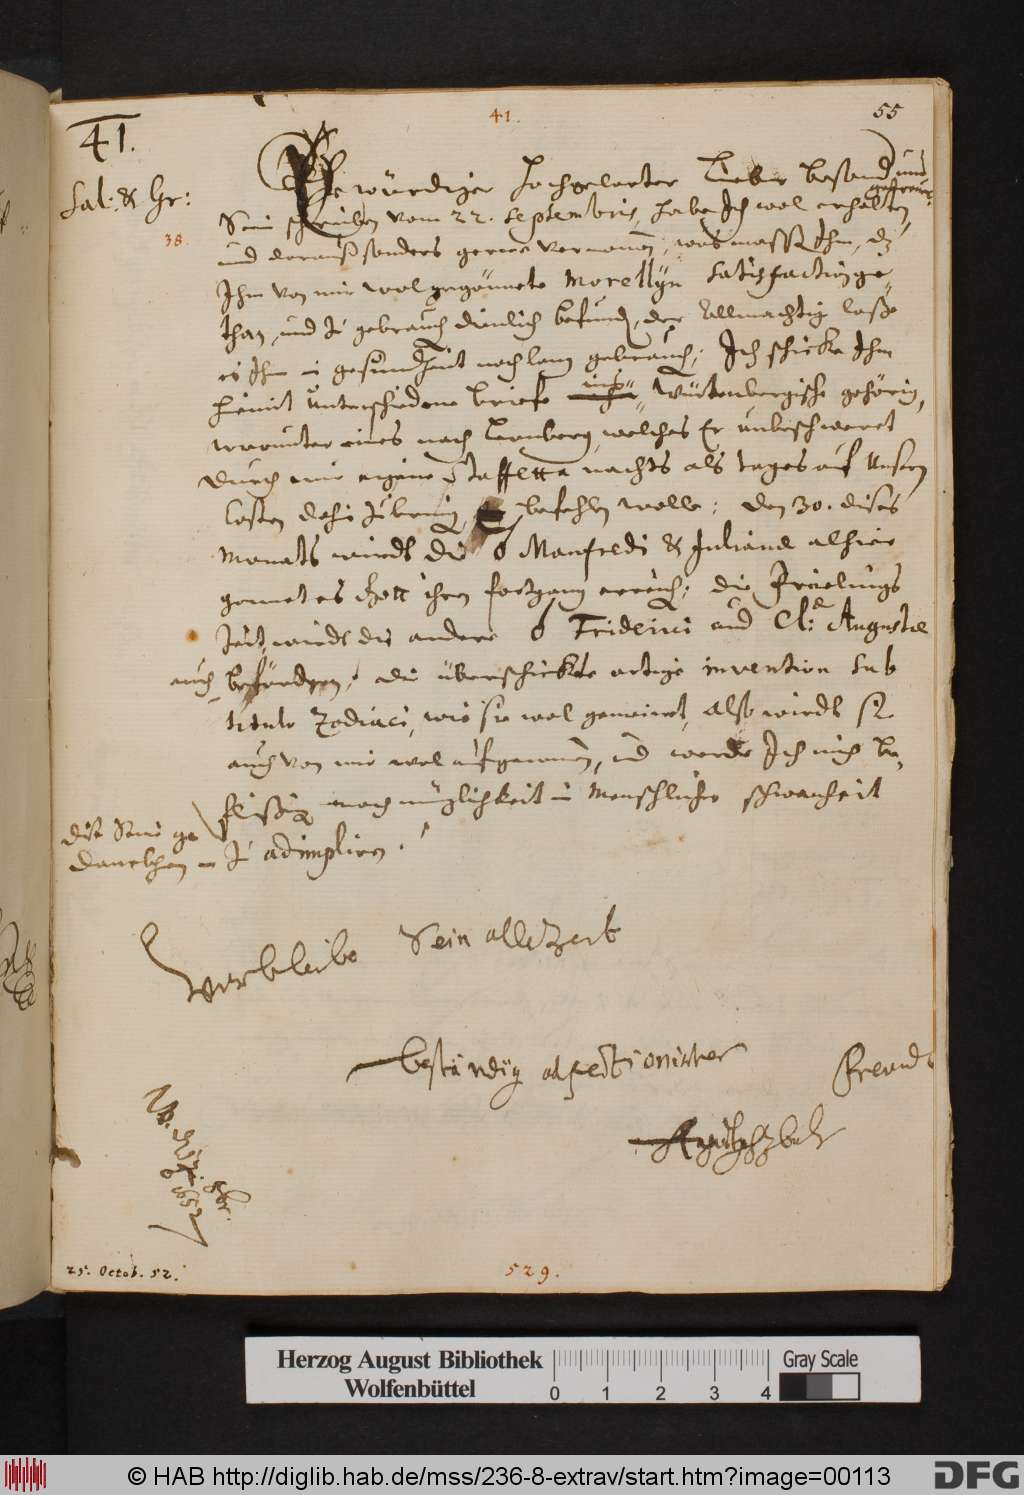 41.
55
41.
Sal: & Gr:
Ehrwürdiger Hochgelarter Lieber bestand. und
getreuer.
Sein schreiben vom 22. Septembris, habe Ich wol erhalten,
38.
und darauß sonders gerne vernomen, was massen Ihm, dz
Ihm von mir wolgegönnete Morellyn Satisfaction ge-
than, und zu gebrauch dienlich befunden, der Allmachtig lasse
es Ihm in gesundheit noch lang gebrauchen; Ich schicke Ihm
hiemit unterschiedene briefe ins Würtenbergische gehörig,
worunter eines nach Leonberg, welches Er unbeschweret
durch eine eigene Staffetta nachts als tages auf Unsern
Costen dahin zubringen, befehlen wolle; den 30. dises
Monats wirdt die ☌ Manfredi & Julianae alhier
geonnet es Gott ihren fortgang erreichen; die Früelings
Zeit, wirdt die andere ☌ Friderici und Cl:ae Augustae
auch befürdern; die überschickte artige invention sub
titulo Zodiaci, wie sie wol gemeinet, also wirdt sie
auch von mir wol aufgenomen, und werde Ich mich be-
fleißigen nach müglichkeit in Menschlicher schwacheit
dise Seine ge
dancken zu adimpliren.
Verbleibe Sein allezeit
beständig affectionirter Freund
AugustusHzBuL
25. Octob. 52.
529.
Herzog August Bibliothek
Wolfenbüttel
0 1 2 3 4
Gray Scale
© HAB http://diglib.hab.de/mss/236-8-extrav/start.htm?image=00113
DFG